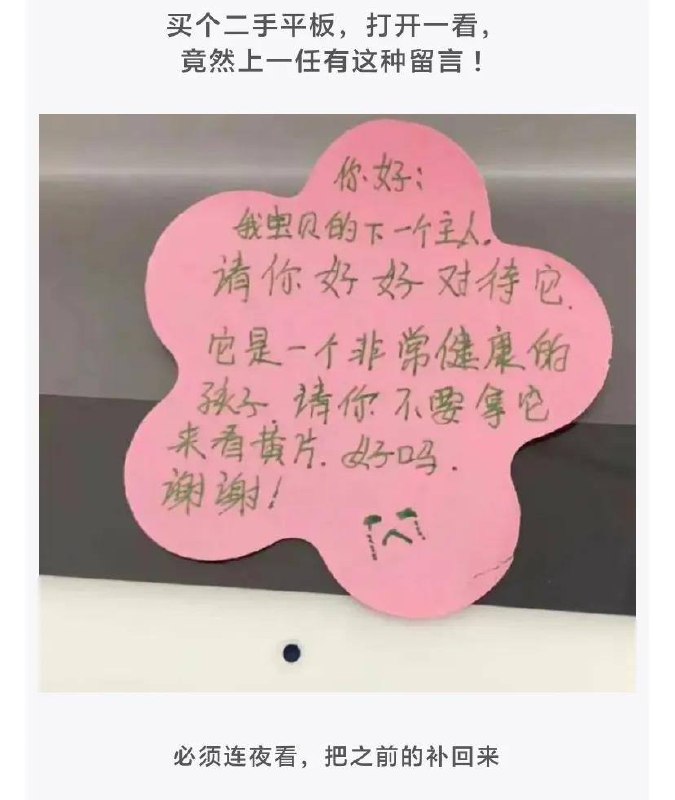 买个二手平板，打开一看，
竟然上一任有这种留言！
你好：
我宝贝的下一个主人.
请你好好对待它.
它是一个非常健康的
孩子.请你不要拿它
来看黄片.好吗.
谢谢！
必须连夜看，把之前的补回来